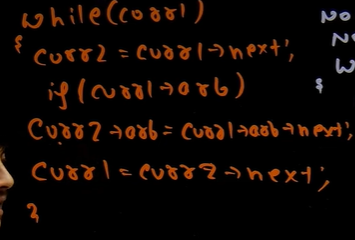 while(curr1)
{
curr2 = curr1→next;
if(curr1→arb)
curr2→arb = curr1→arb→next;
curr1 = curr2→next;
}
NO
N
W
{